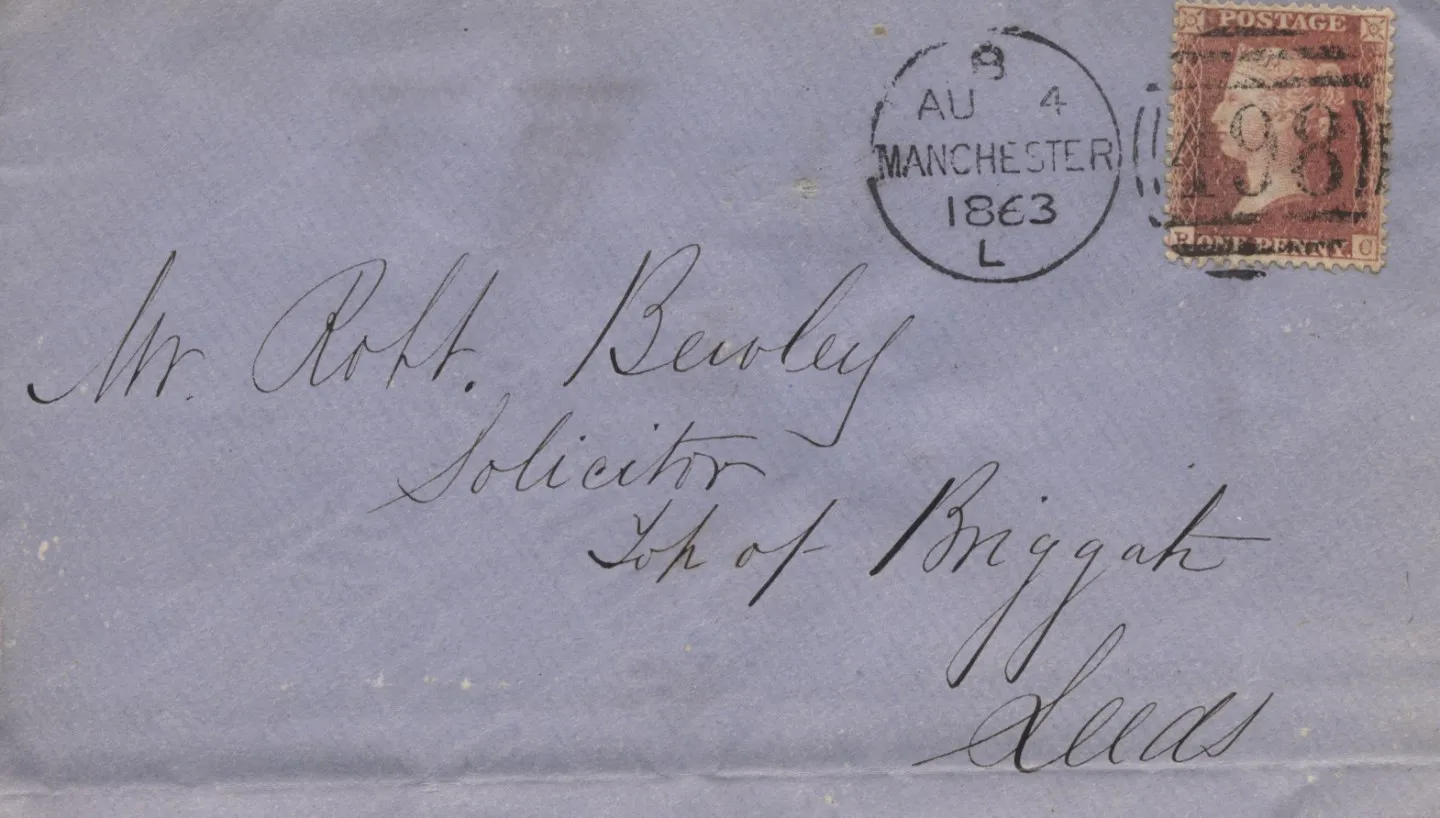 POSTAGE
B
AU 4
MANCHESTER
1863
L
498
R ONE PENNY. C
Mr. Robt. Bewley
Solicitor
Top of Briggate
Leeds